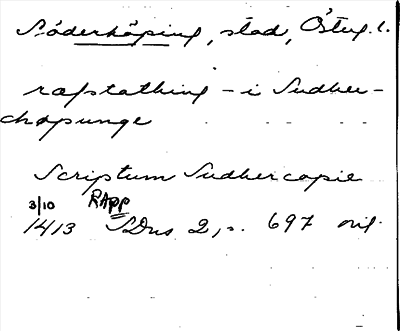 Söderköping, stad, Östug. l.
rafstathing - i Sudher-
chøpunge
Scriptum Sudhercopie
3/10 RApp
1413 SDns 2, s. 697 oril.